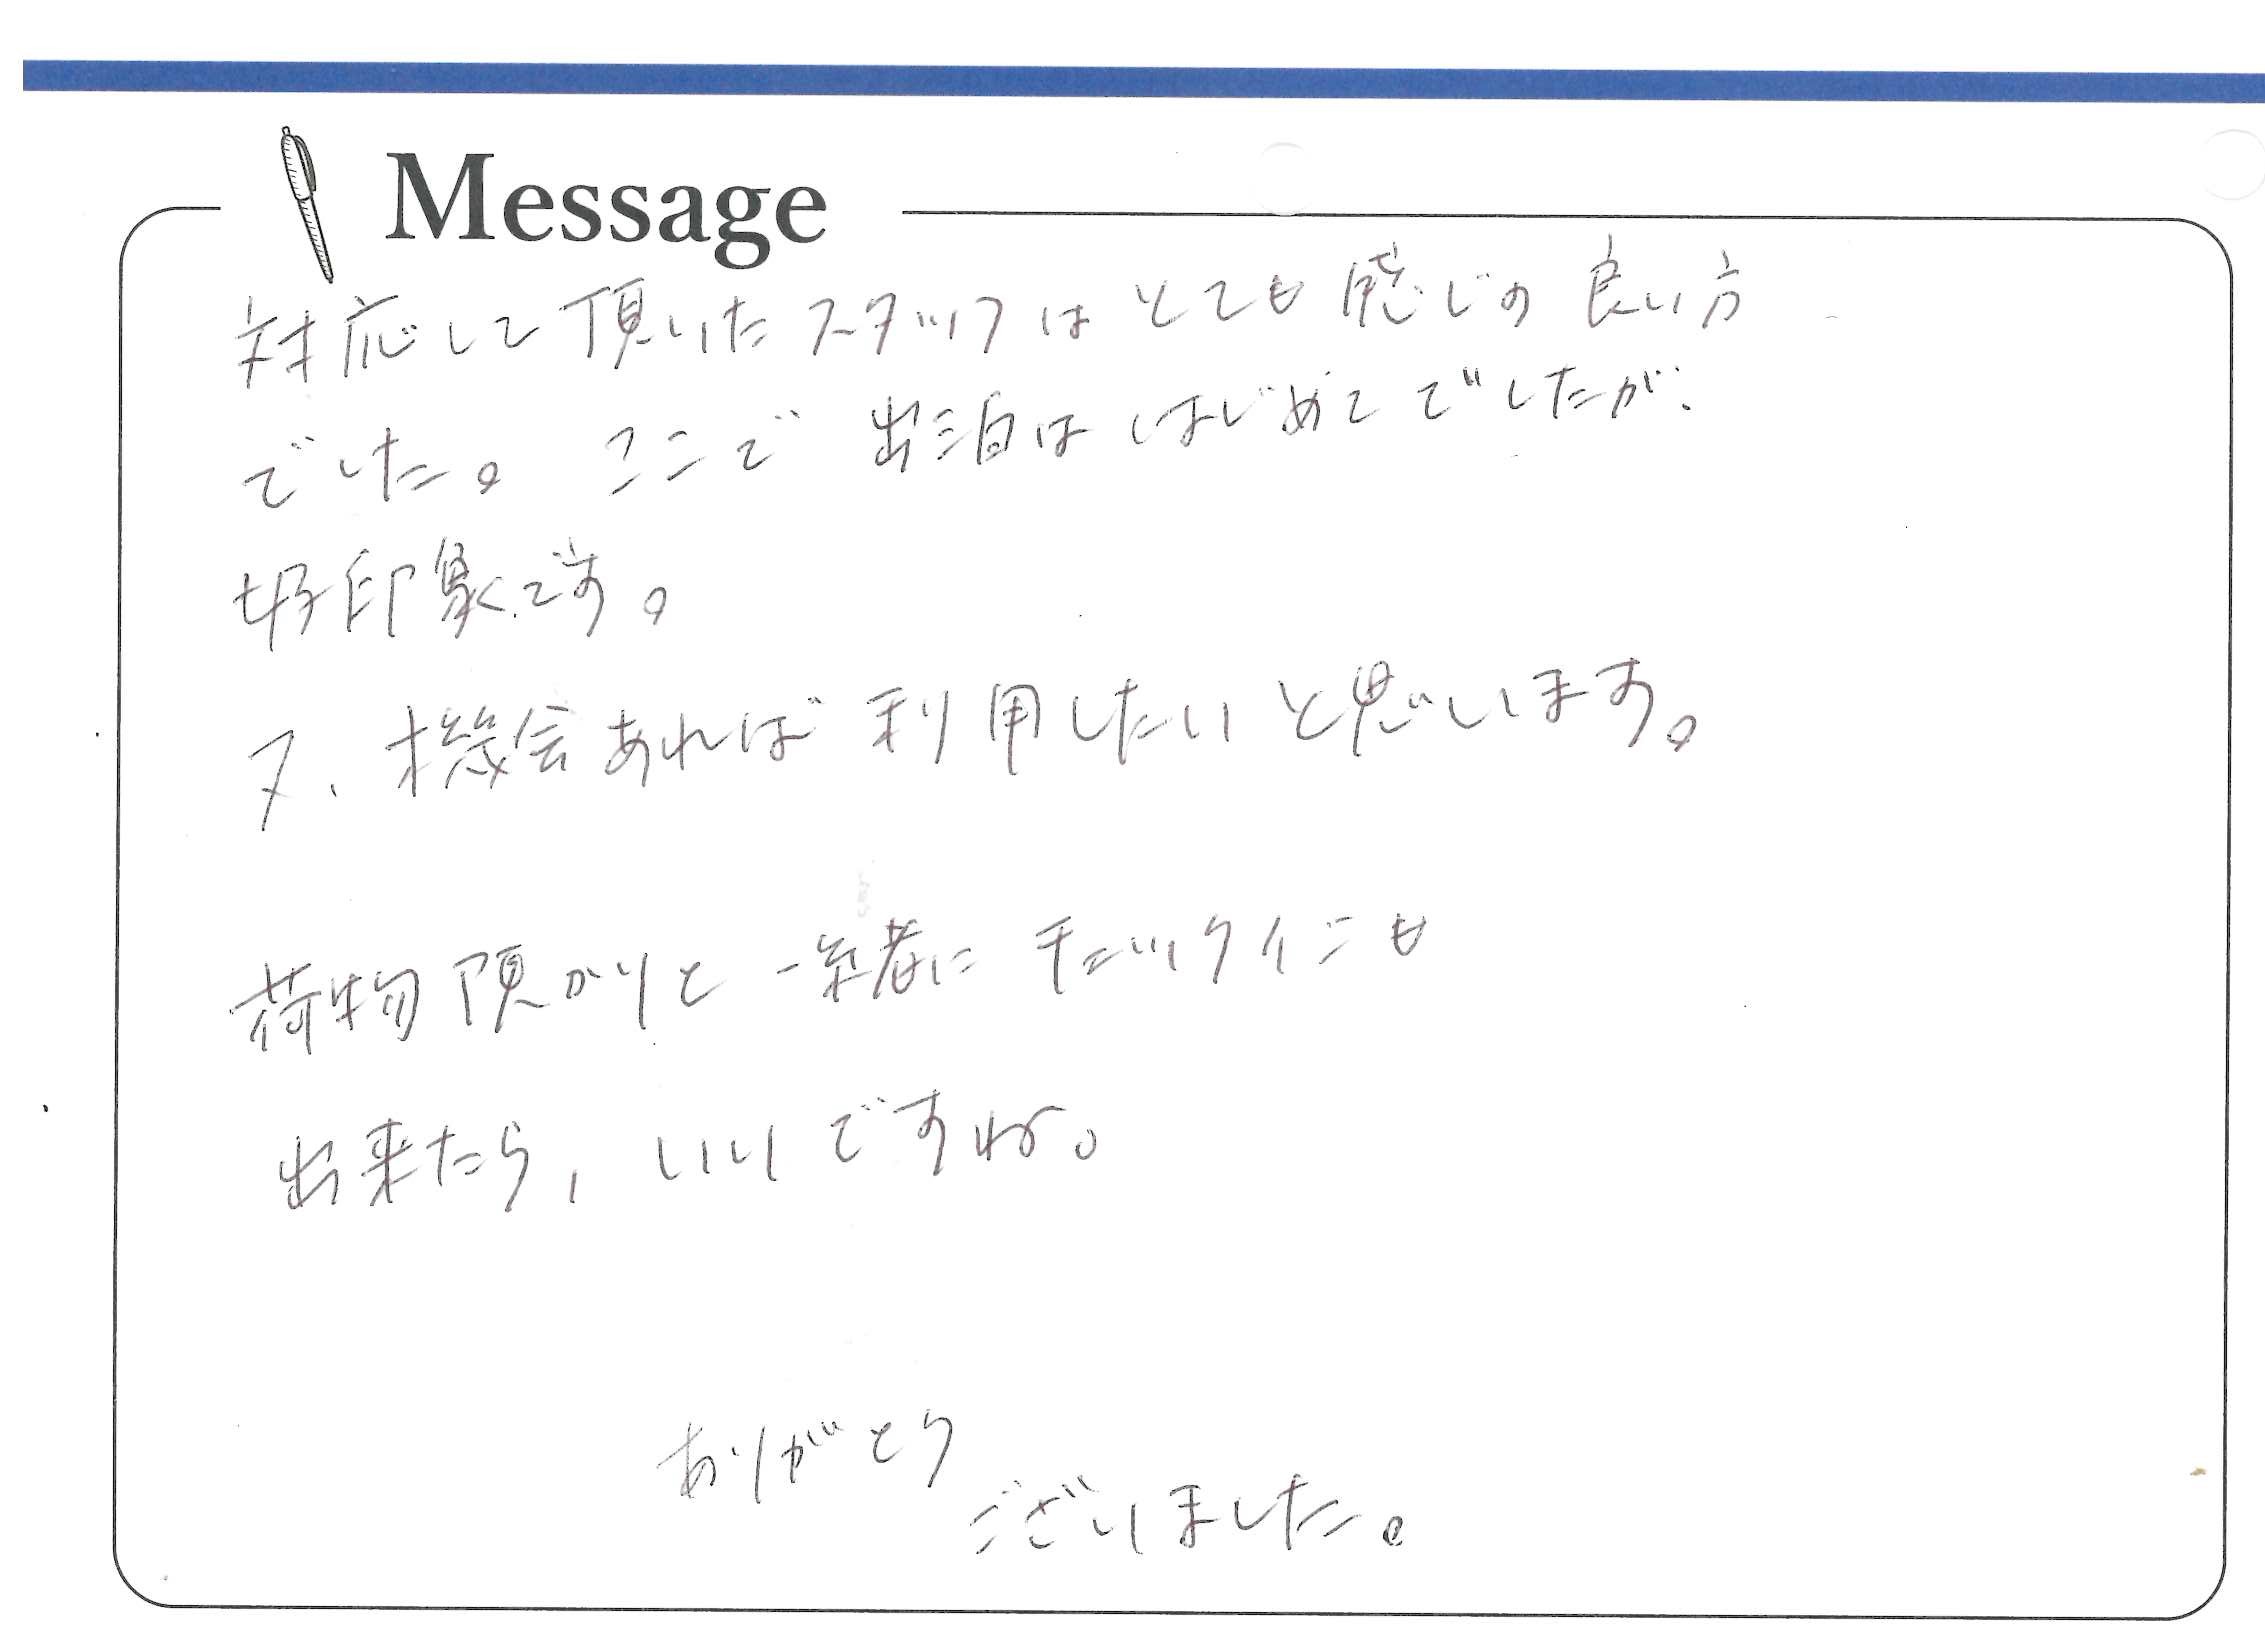 Message
対応して頂いたスタッフはとても感じの良い方
でした。ここで出泊ははじめてでしたが、
好印象です。
又、機会あれば利用したいと思います。
荷物預かりと一緒にチェックインも
出来たら、いいですね。
ありがとう
ございました。